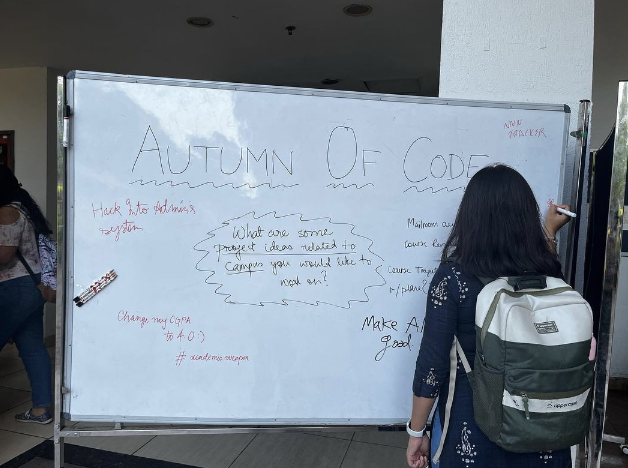 AUTUMN OF CODE
NNN
TRACKER
Hack Into Admin's
system
What are some
project ideas related to
Campus you would like to
work on?
Mailroom
course
Course
Change my CGPA
to 4.0 :)
# academic weapon
Make
good